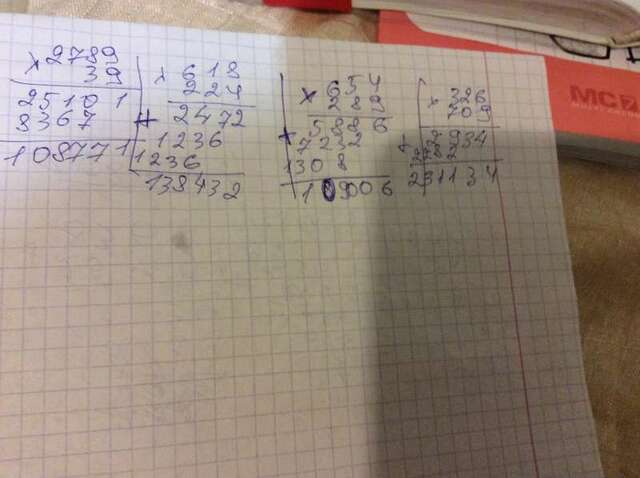 × 2789
39
25101
8367
108771
× 618
224
+ 2472
1236
1236
138432
× 654
289
5886
+ 7232
1308
109006
× 326
709
+ 2934
231134